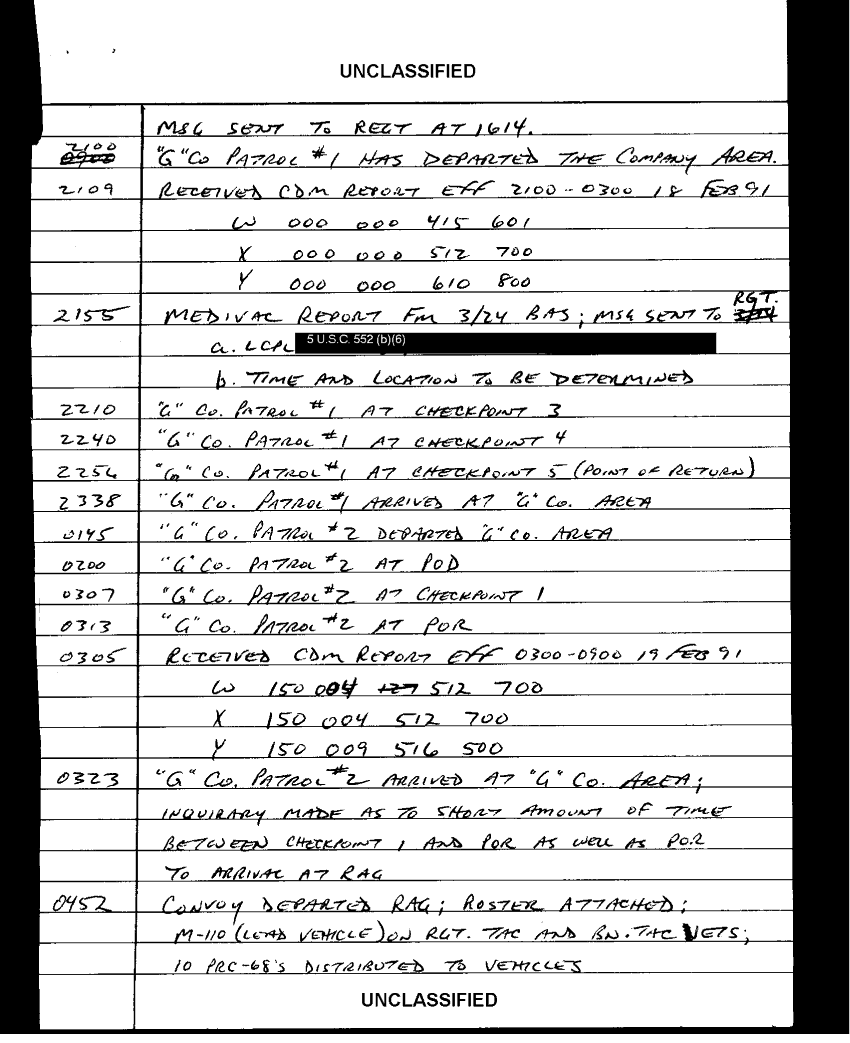 UNCLASSIFIED
MSG SENT TO REGT AT 1614.
2100 0900 "G" CO PATROL #1 HAS DEPARTED THE COMPANY AREA.
2109 RECEIVED CDM REPORT EFF 2100-0300 18 FEB 91
W 000 000 415 601
X 000 000 512 700
Y 000 000 610 800
RGT.
2155 MEDIVAC REPORT FM 3/24 BAS; MSG SENT TO 3/24
a. LCPL 5 U.S.C. 552 (b)(6)
b. TIME AND LOCATION TO BE DETERMINED
2210 "G" CO. PATROL #1 AT CHECKPOINT 3
2240 "G" CO. PATROL #1 AT CHECKPOINT 4
2256 "G" CO. PATROL #1 AT CHECKPOINT 5 (POINT OF RETURN)
2338 "G" CO. PATROL #1 ARRIVED AT "G" CO. AREA
0145 "G" CO. PATROL #2 DEPARTED "G" CO. AREA
0200 "G" CO. PATROL #2 AT POD
0307 "G" CO. PATROL #2 AT CHECKPOINT 1
0313 "G" CO. PATROL #2 AT POR
0305 RECEIVED CDM REPORT EFF 0300-0900 19 FEB 91
W 150 004 127 512 700
X 150 004 512 700
Y 150 009 516 500
0323 "G" CO. PATROL #2 ARRIVED AT "G" CO. AREA;
INQUIRARY MADE AS TO SHORT AMOUNT OF TIME
BETWEEN CHECKPOINT 1 AND POR AS WELL AS POR
TO ARRIVAL AT RAG
0452 CONVOY DEPARTED RAG; ROSTER ATTACHED;
M-110 (LEAD VEHICLE) ON RGT. TAC AND BN. TAC NETS;
10 PRC-68'S DISTRIBUTED TO VEHICLES
UNCLASSIFIED